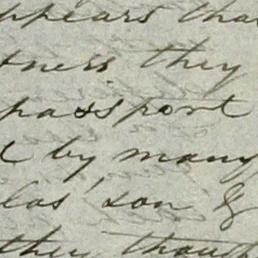 appears that
tness they
passport
by many
las' son &
they though